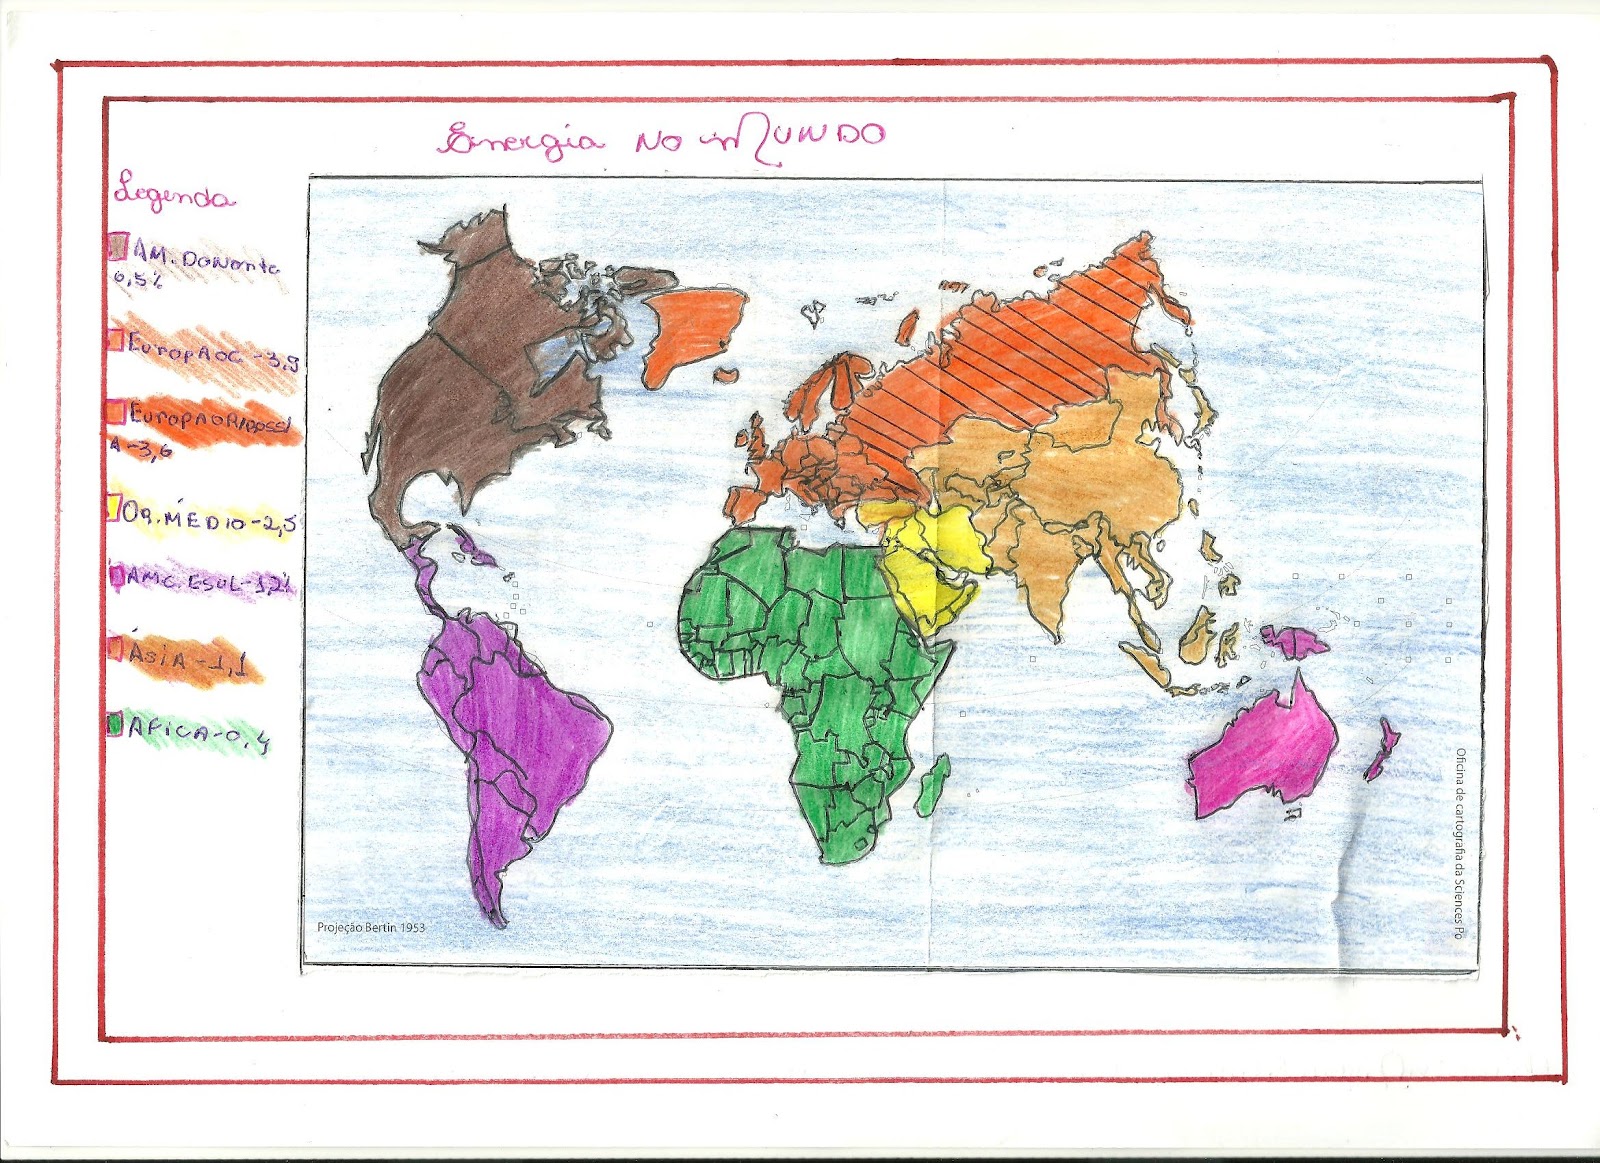 Energia no mundo
Legenda
AM. DO Norte
6,5%
Europa oc -3,9
Europa OR/
A -3,6
OR. MÉDIO -2,5
AMC. E SUL -1,2%
ÁSIA -1,1
AFICA -0,4
Projeção Bertin 1953
Oficina de cartografia da Sciences Po